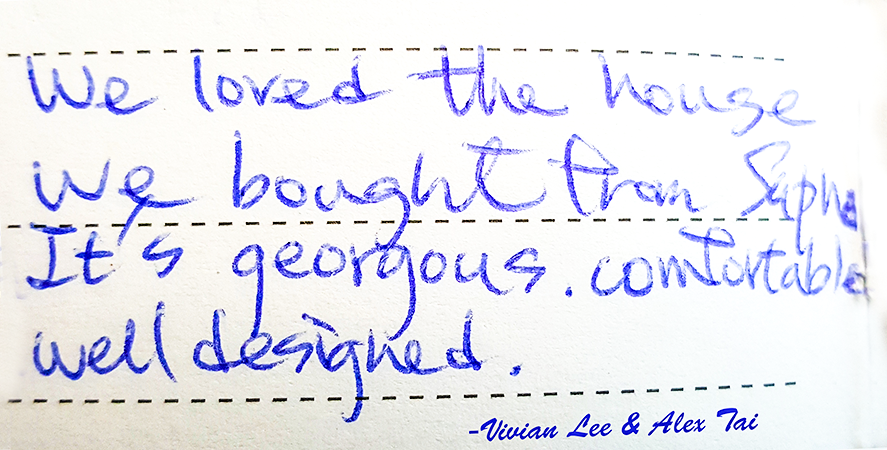 We loved the house
We bought from
It's georgous. comfortable
well designed.
-Vivian Lee & Alex Tai